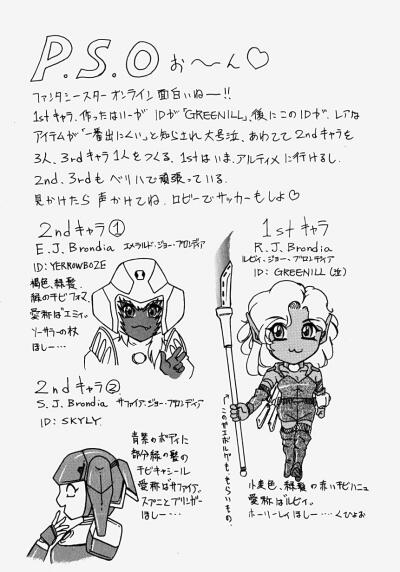 P.S.O お〜ん♡
ファンタシースター オンライン 面白いねー!!
1stキャラ、作ったはいーが IDが「GREENILL」、後にこのIDが、レアな
アイテムが「一番出にくい」と知らされ大号泣、あわてて2ndキャラを
3人、3rdキャラ1人をつくる。1stはいま、アルティメに行けるし、
2nd、3rdも ベリハで頑張っている。
見かけたら 声かけてね。ロビーでサッカーもしよ♡
2ndキャラ①
E.J.Brondia エメラルド・ジョー・ブロンディア
ID:YERROWBOZE
褐色、緑髪、
緑のチビフォマ。
愛称は"エミィ。
ソーサラーの杖
ほしー…
1stキャラ
R.J.Brondia
ルビィ・ジョー・ブロンディア
ID:GREENILL(泣)
このヴィエボルグも、もらいもの。
小麦色、緑髪の赤いチビハニュ
愛称は"ルビィ。
ホーリーレイほしー…くひょお
2ndキャラ②
S.J.Brondia サファイア・ジョー・ブロンディア
ID:SKYLY
青紫のボディに
部分緑の髪の
チビキャシール
愛称は"サファイア。
スプニとブリンガー
ほしー…